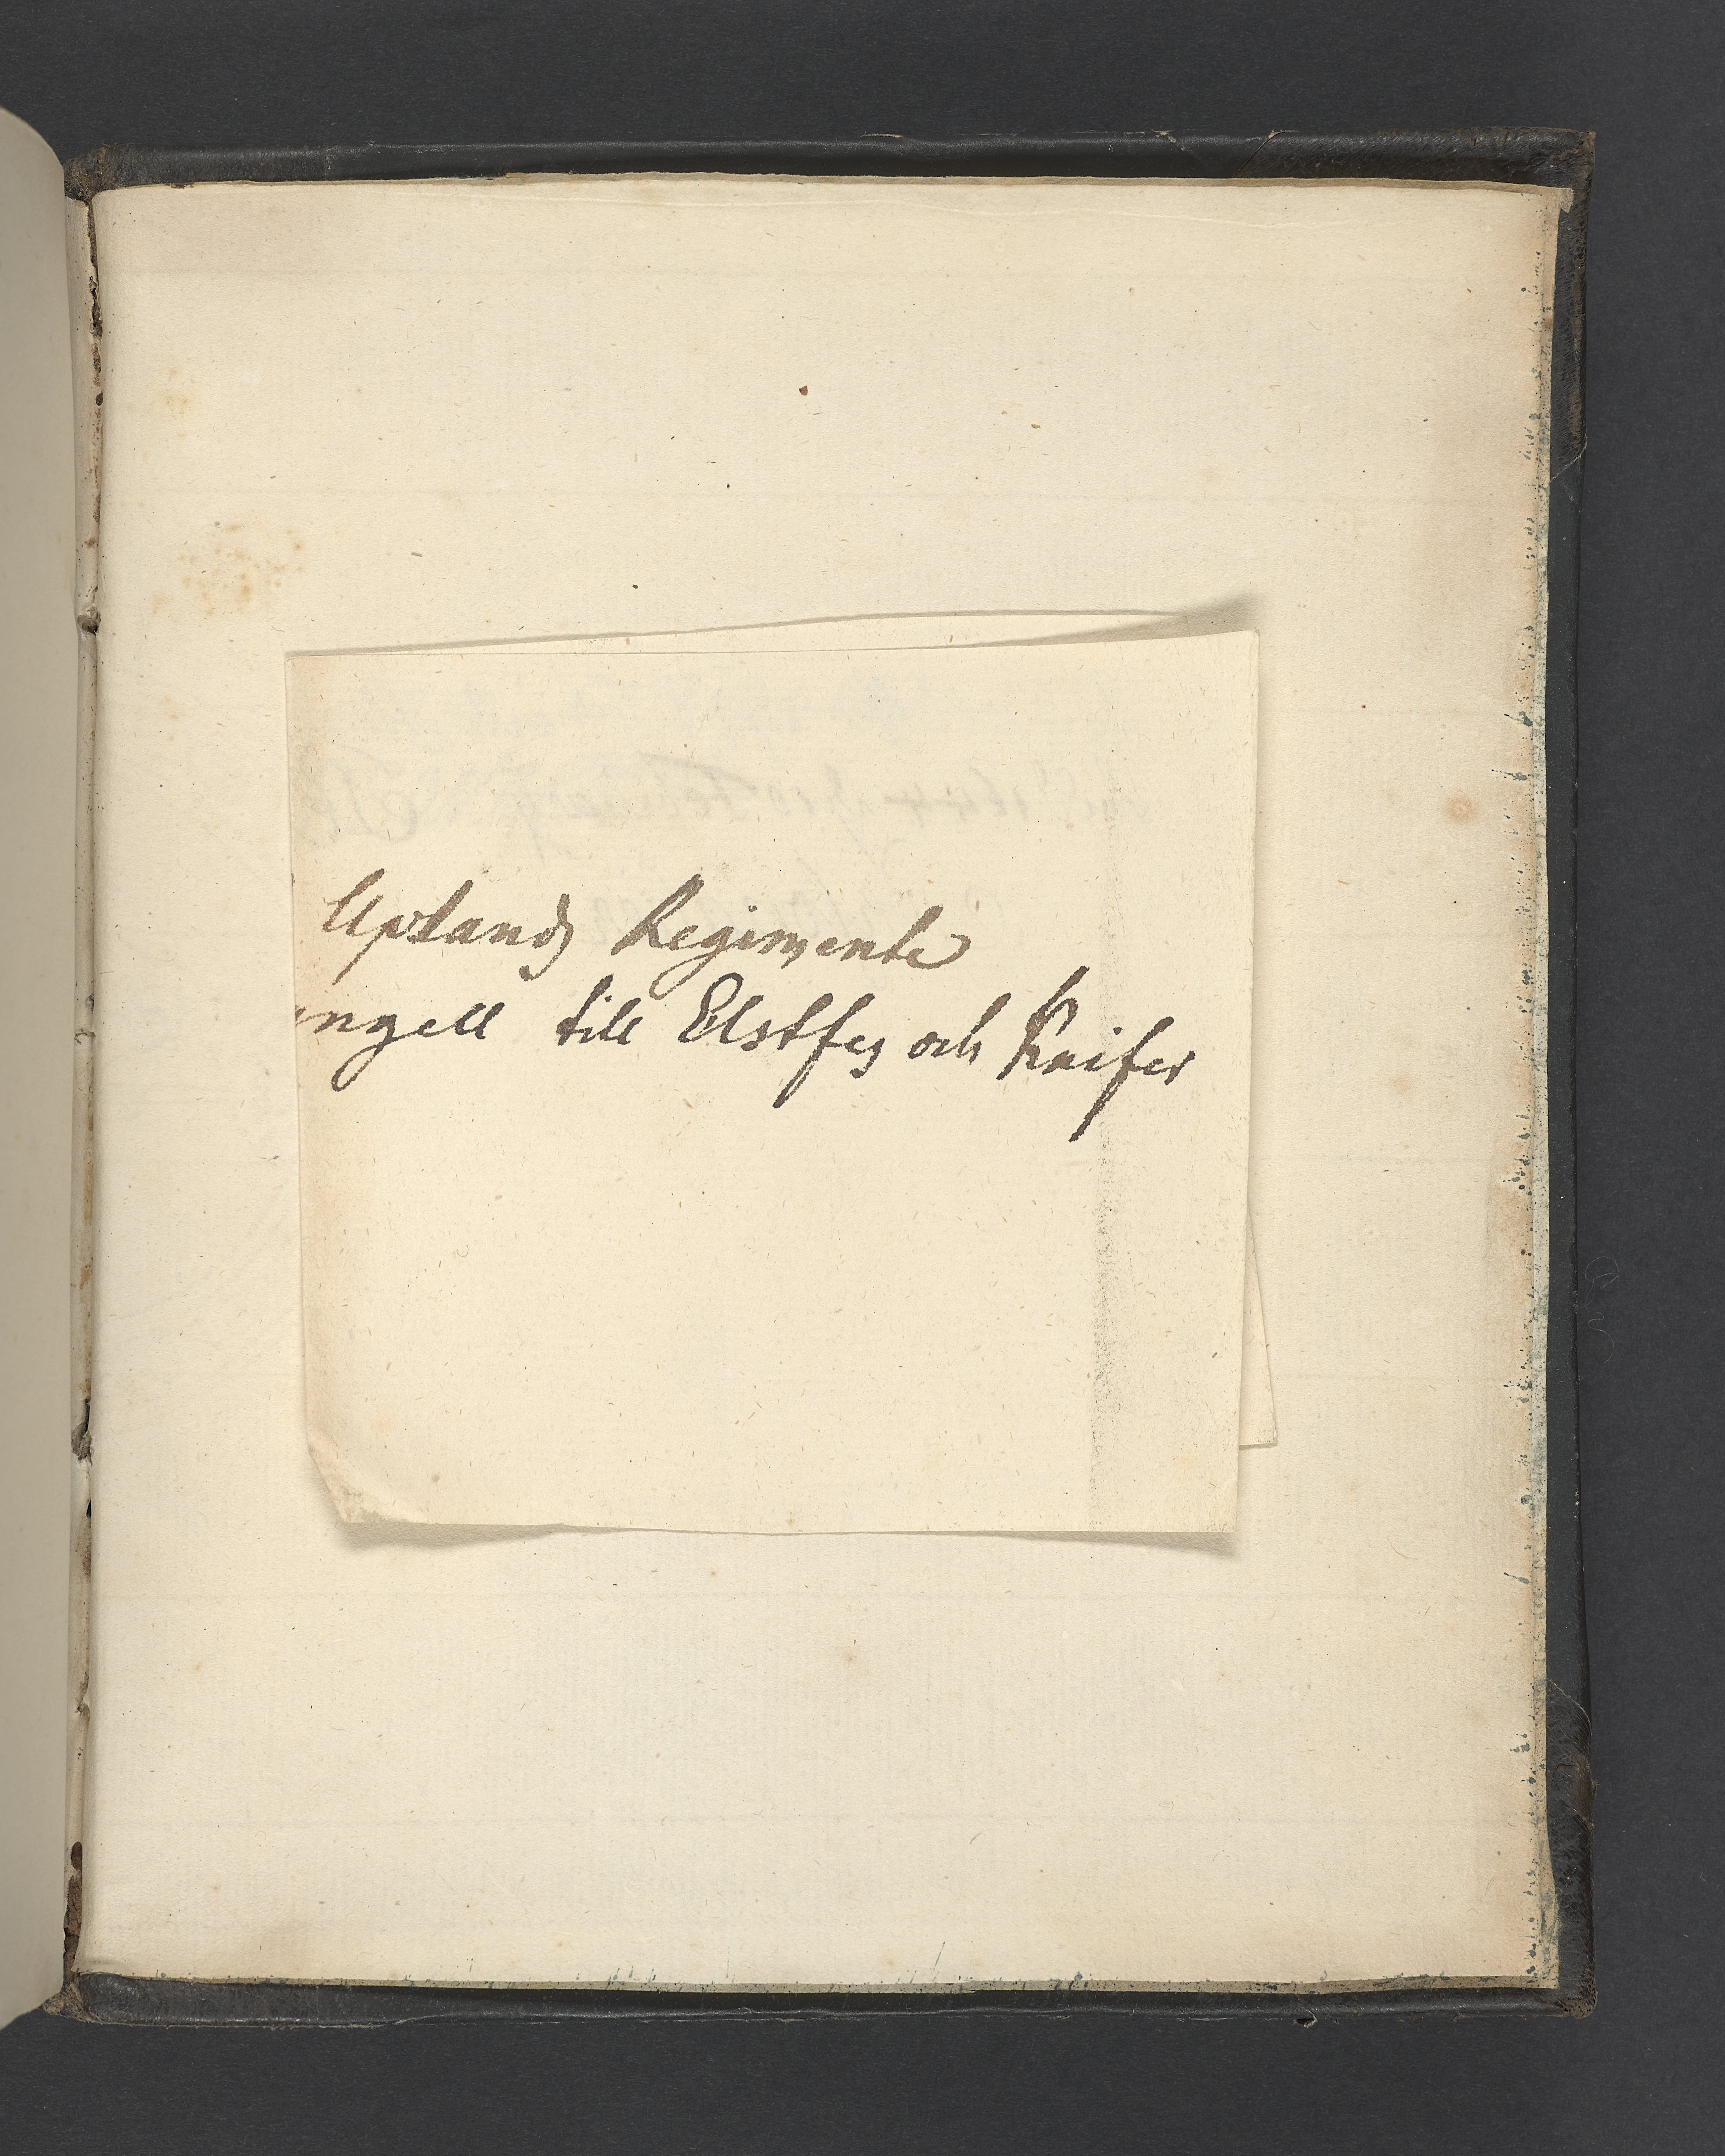 Uplandz Regimente
ngell till Elstfes och Kaifer